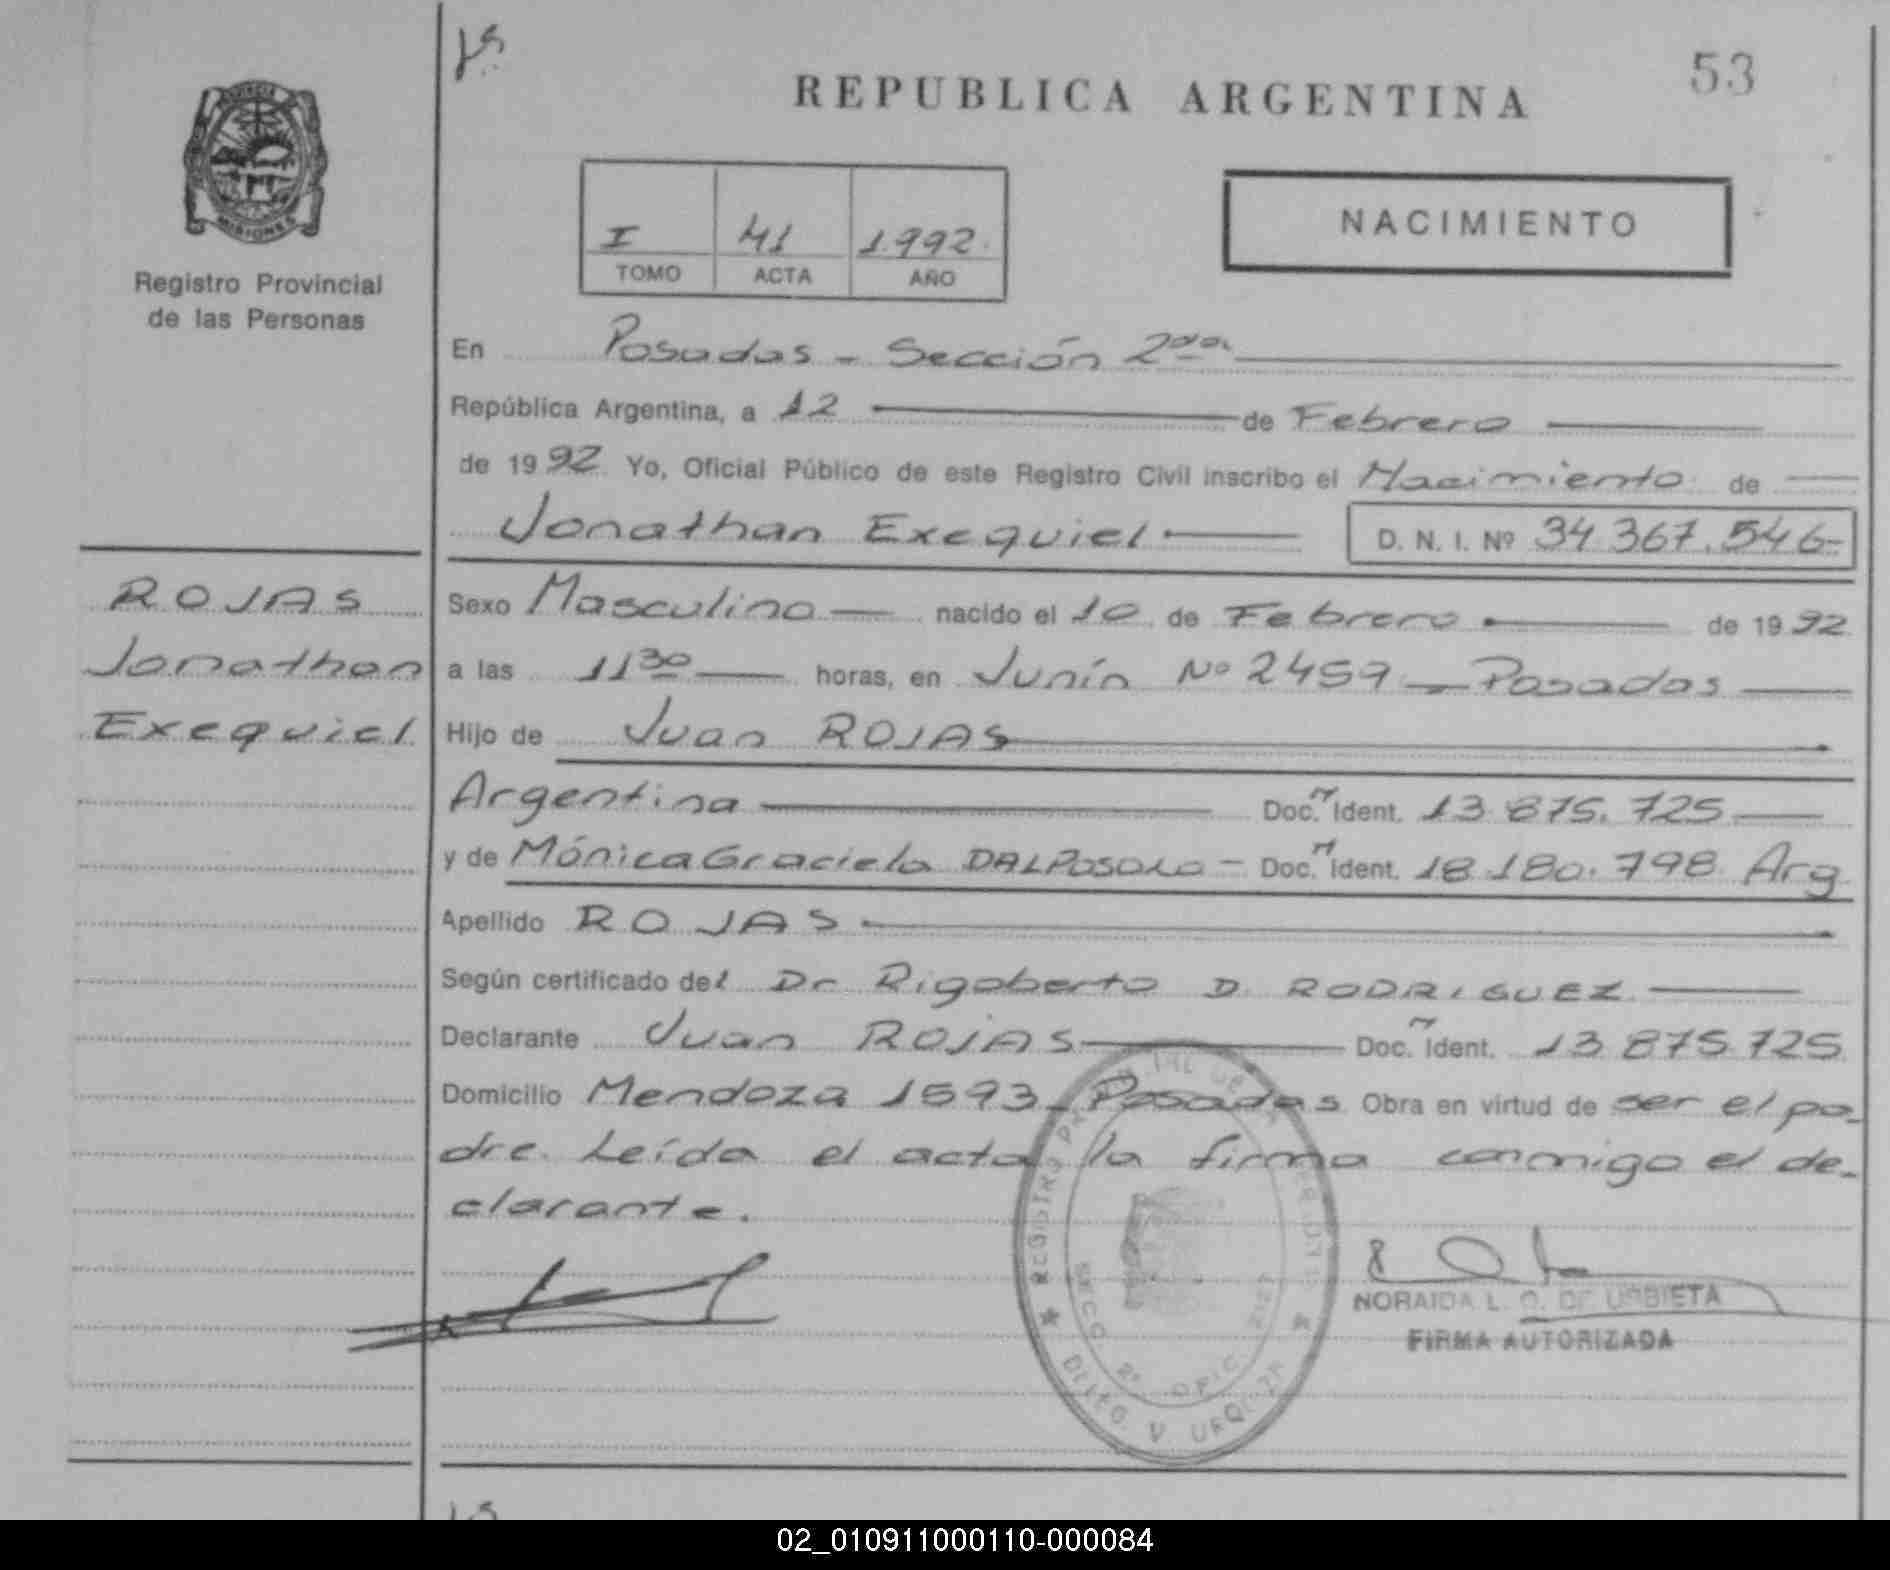 53
REPUBLICA ARGENTINA
PROVINCIA
MISIONES
Registro Provincial
de las Personas
I 41 1.992.
TOMO ACTA AÑO
NACIMIENTO
En Posadas - Sección 2da
República Argentina, a 12 de Febrero
de 1992 Yo, Oficial Público de este Registro Civil inscribo el Nacimiento de
Jonathan Exequiel D. N. I. Nº 34 367.546-
ROJAS
Jonathan
Exequiel
Sexo Masculino nacido el 10 de Febrero de 1992
a las 11 30 horas, en Junín Nº 2459 - Posadas
Hijo de Juan ROJAS
Argentina Doc. Ident. 13.875.725
y de Mónica Graciela Doc. Ident. 18.180.798 Arg
Apellido ROJAS
Según certificado del Dr Rigoberto D. RODRIGUEZ
Declarante Juan ROJAS Doc. Ident. 13 875 725
Domicilio Mendoza 1593 - Posadas Obra en virtud de ser el pa-
dre. Leída el acta la firma conmigo el de-
clarante.
NORAIDA L. O. DE URBIETA
FIRMA AUTORIZADA
02_010911000110-000084